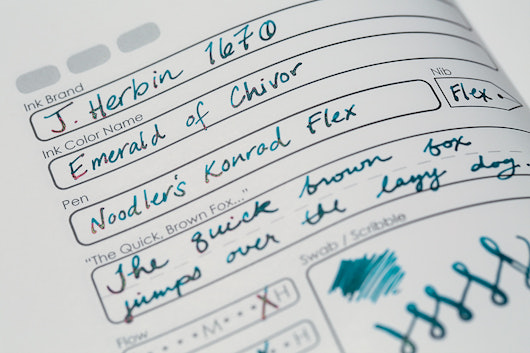 Ink Brand
J. Herbin 1670
Ink Color Name
Emerald of Chivor
Nib
Flex.
Pen
Noodler's Konrad Flex
"The Quick, Brown Fox..."
The quick brown box
jumps over the lazy dog.
Swab / Scribble
Flow
M X H